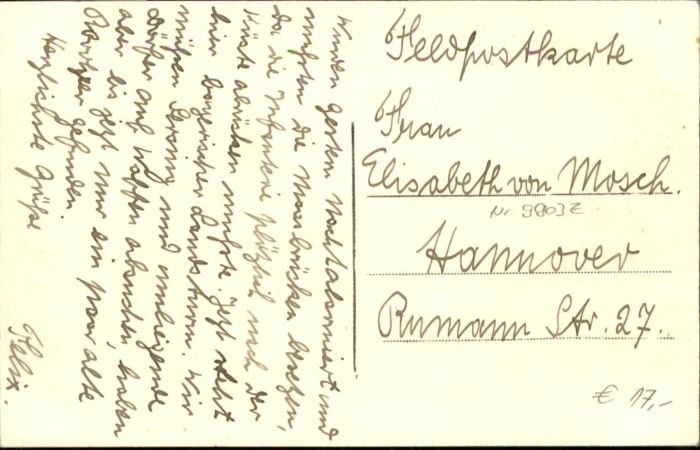 Wurden gestern Nacht alarmiert und
mußten die Maasbrücken besetzen,
da die Infanterie plötzlich nach der
Küste abrücken mußte. Jetzt steht
hier bayrischer Landsturm. Wir
müßen und umliegende
Dörfer auf Waffen absuchen, haben
aber bis jetzt nur ein paar alte
gefunden.
Herzlichste Grüße
Felix.
Feldpostkarte
Frau
Elisabeth von Mosch.
Nr. 9903Z
Hannover
Rumann Str. 27.
€ 17,-